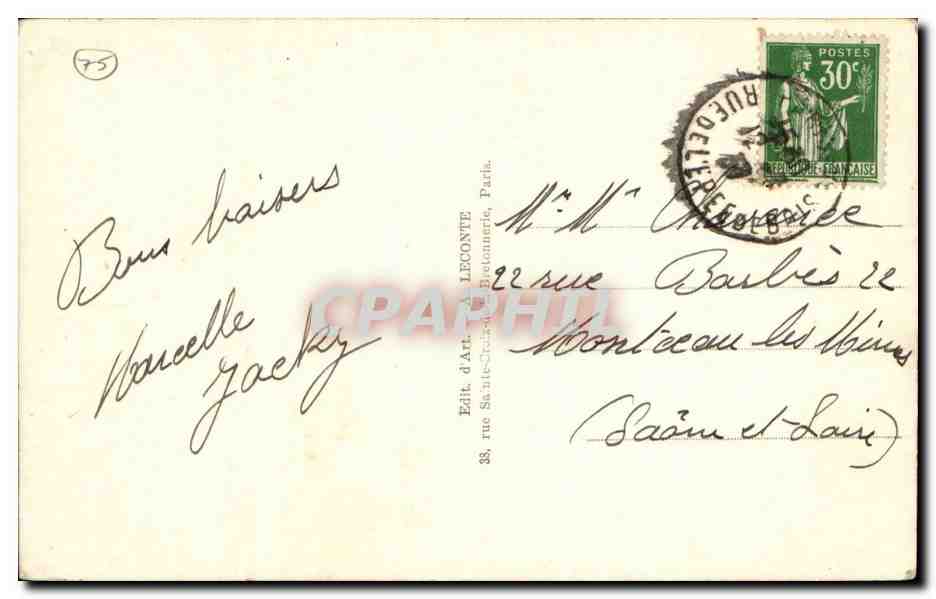 75
POSTES
30c
REPUBLIQUE FRANÇAISE
RUE DE L'EPEE DE BOIS
Bons baisers
Marcelle
Jacky
Edit. d'Art. A. LECONTE
38, rue Sainte-Croix-de-la-Bretonnerie, Paris.
CPAPHIL
Mr Me
22 rue Barbès 22
Montceau les Mines
(Saône et Loire)